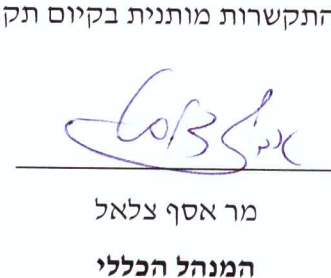 התקשרות מותנית בקיום תק
מר אסף צלאל
המנהל הכללי